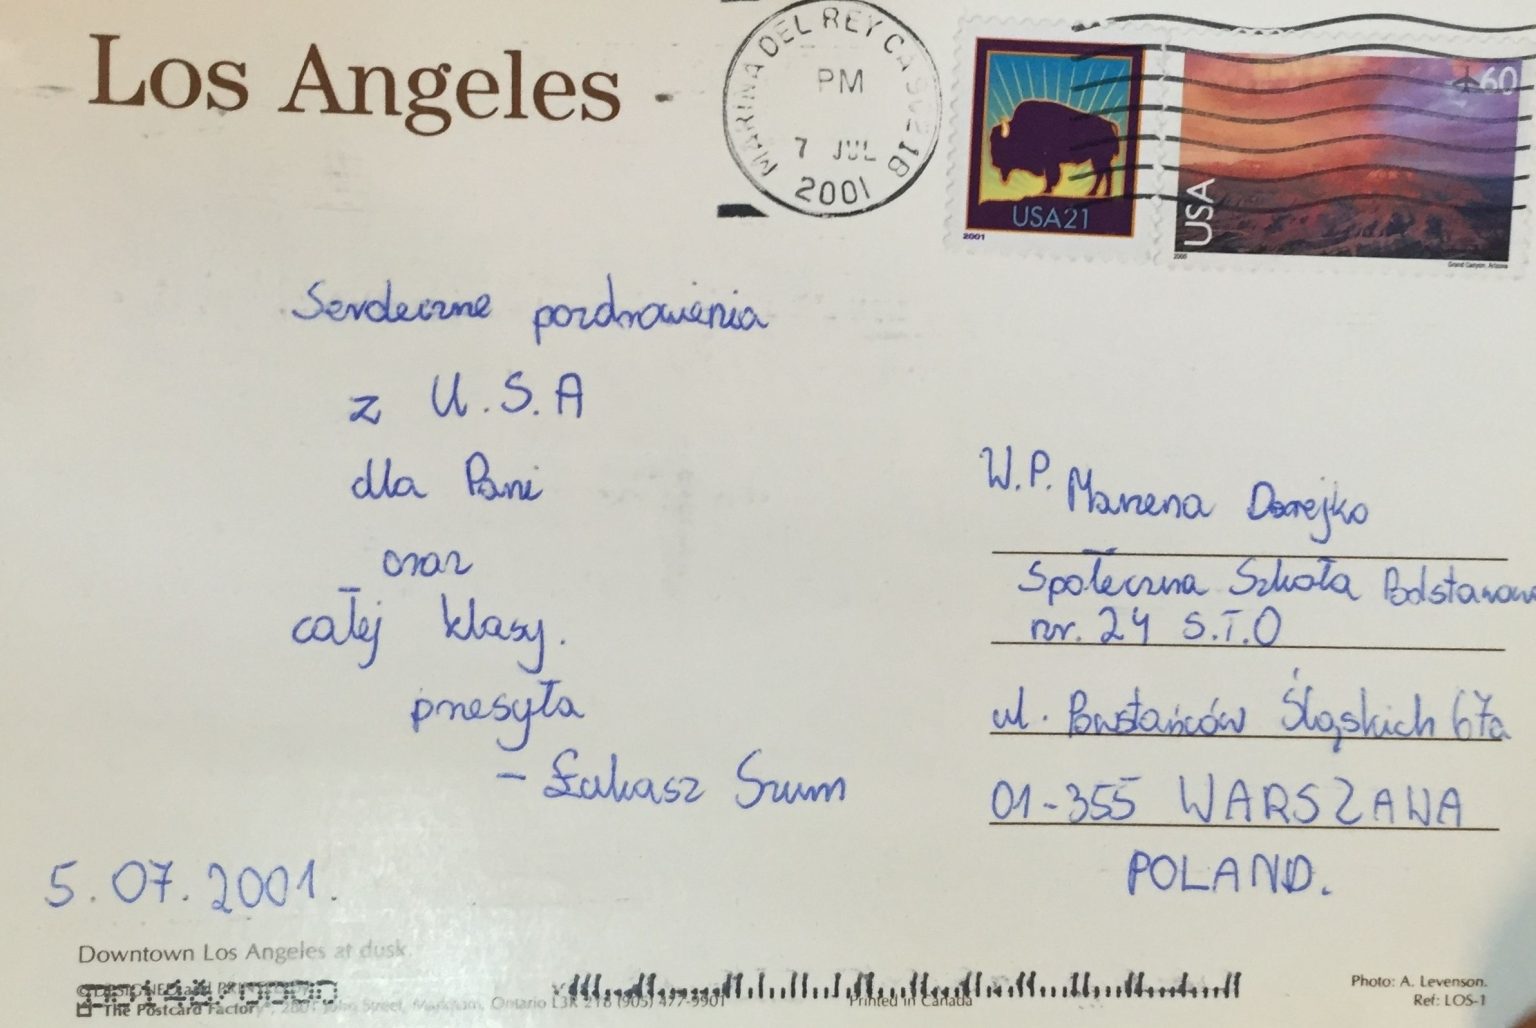 Los Angeles
MARINA DEL REY CA
PM
7 JUL
2001
USA21
2001
60
USA
2000
Grand Canyon, Arizona
Serdeczne pozdrowienia
z U.S.A
dla Pani
oraz
całej klasy.
przesyła
- Łukasz Szum
5.07.2001.
W.P. Marzena Dorejko
Społeczna Szkoła Podstawowa
nr. 24 S.T.O
ul. Powstańców Śląskich 67a
01-355 WARSZAWA
POLAND.
Downtown Los Angeles at dusk.
The Postcard Factory John Street, Markham, Ontario L3R (905) 477-9901 Printed in Canada
Photo: A. Levenson.
Ref: LOS-1